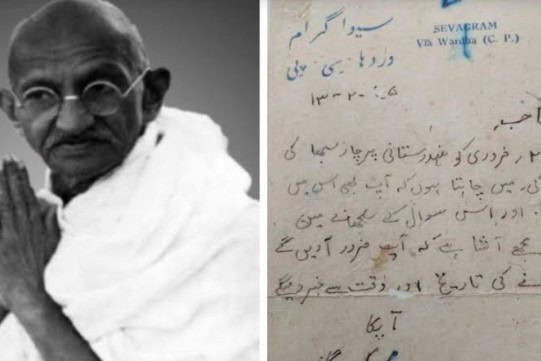 سیوا گرام
وردہا سی پی
SEVAGRAM
Via Wardha (C. P.)
فروری کو ہندوستانی پرچار سبھا کی
میں چاہتا ہوں کہ آپ بھی اس میں
اور اس سوال کے سلجھانے میں
مجھے آشا ہے کہ آپ ضرور آویں گے
کی تاریخ اور وقت سے خبر دینگے
آپکا